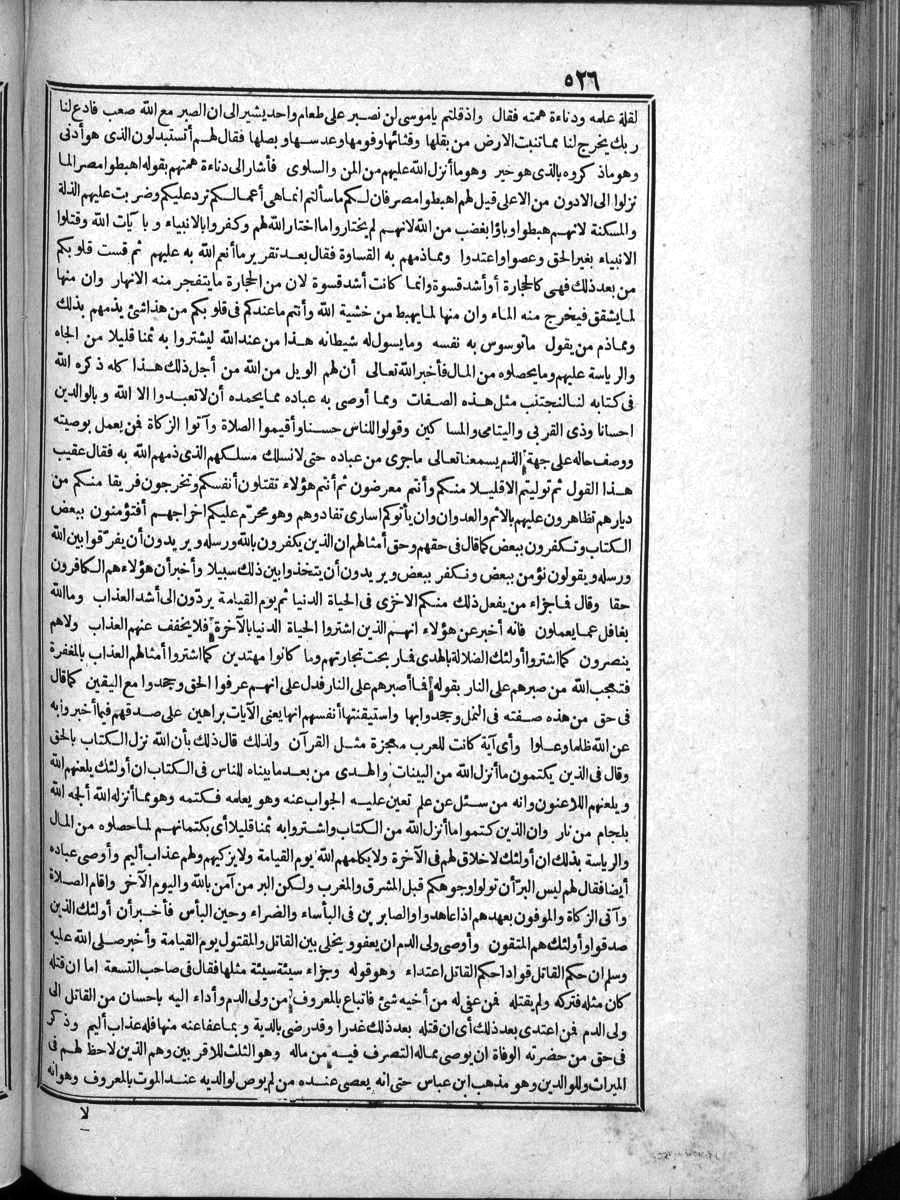 ٥٢٦
لقلة علمه ودناءة همته فقال واذ قلتم ياموسى لن نصبر على طعام واحد يشير الى ان الصبر مع الله صعب فادع لنا
ربك يخرج لنا مما تنبت الارض من بقلها وقثائها وفومها وعدسها وبصلها فقال لهم أتستبدلون الذى هو أدنى
وهو ماذكروه بالذى هو خير وهو ما أنزل الله عليهم من المن والسلوى فأشار الى دناءة همتهم بقوله اهبطوا مصر الما
نزلوا الى الادون من الاعلى قيل لهم اهبطوا مصر فان لكم ماسألتم انما هى أعمالكم ترد عليكم وضربت عليهم الذلة
والمسكنة لانهم هبطوا وباؤا بغضب من الله لانهم لم يختاروا ما اختار الله لهم وكفروا بالانبياء و بآيات الله وقتلوا
الانبياء بغير الحق وعصوا واعتدوا ومماذمهم به القساوة فقال بعد تقرير ما أنعم الله به عليهم ثم قست قلوبكم
من بعد ذلك فهى كالحجارة أو أشد قسوة وانما كانت أشد قسوة لان من الحجارة مايتفجر منه الانهار وان منها
لما يشقق فيخرج منه الماء وان منها لما يهبط من خشية الله وأنتم ماعندكم فى قلوبكم من هذا شئ يذمهم بذلك
ومما ذم من يقول ماتوسوس به نفسه ومايسول له شيطانه هذا من عند الله ليشتروا به ثمنا قليلا من الجاه
والرياسة عليهم ومايحصلوه من المال فأخبر الله تعالى أن لهم الويل من الله من أجل ذلك هذا كله ذكره الله
فى كتابه لنا لنجتنب مثل هذه الصفات ومما أوصى به عباده مما يحمده أن لاتعبدوا الا الله وبالوالدين
احسانا وذى القربى واليتامى والمساكين وقولوا للناس حسنا وأقيموا الصلاة وآتوا الزكاة فمن يعمل بوصيته
ووصف حاله على جهة الذم يسمعنا تعالى ماجرى من عباده حتى لانسلك مسلكهم الذى ذمهم الله به فقال عقيب
هذا القول ثم توليتم الاقليلا منكم وأنتم معرضون ثم أنتم هؤلاء تقتلون أنفسكم وتخرجون فريقا منكم من
ديارهم تظاهرون عليهم بالاثم والعدوان وان يأتوكم اسارى تفادوهم وهو محرّم عليكم اخراجهم أفتؤمنون ببعض
الكتاب وتكفرون ببعض كما قال فى حقهم وحق أمثالهم ان الذين يكفرون بالله ورسله ويريدون أن يفرّقوا بين الله
ورسله ويقولون نؤمن ببعض ونكفر ببعض ويريدون أن يتخذوا بين ذلك سبيلا وأخبر أن هؤلاء هم الكافرون
حقا وقال فما جزاء من يفعل ذلك منكم الاخزى فى الحياة الدنيا ثم يوم القيامة يردّون الى أشد العذاب وما الله
بغافل عما يعملون فانه أخبر عن هؤلاء انهم الذين اشتروا الحياة الدنيا بالآخرة فلايخفف عنهم العذاب ولاهم
ينصرون كما اشتروا أولئك الضلالة بالهدى فما ربحت تجارتهم وما كانوا مهتدين كما اشتروا أمثالهم العذاب بالمغفرة
فتعجب الله من صبرهم على النار بقوله فما أصبرهم على النار فدل على انهم عرفوا الحق وجحدوا مع اليقين كما قال
فى حق من هذه صفته فى النمل وجحدوا بها واستيقنتها أنفسهم انها يعنى الآيات براهين على صدقهم فيما أخبروا به
عن الله ظلما وعلوا وأى آية كانت للعرب معجزة مثل القرآن ولذلك قال ذلك بأن الله نزل الكتاب بالحق
وقال فى الذين يكتمون ما أنزل الله من البينات والهدى من بعد مابيناه للناس فى الكتاب ان أولئك يلعنهم الله
ويلعنهم اللاعنون وانه من سئل عن علم تعين عليه الجواب عنه وهو يعلمه فكتمه وهو مما أنزله الله ألجمه الله
بلجام من نار وان الذين كتموا ما أنزل الله من الكتاب واشتروا به ثمنا قليلا أى بكتمانهم لما حصلوه من المال
والرياسة بذلك ان أولئك لاخلاق لهم فى الآخرة ولايكلمهم الله يوم القيامة ولايزكيهم ولهم عذاب أليم وأوصى عباده
أيضا فقال لهم ليس البرّ أن تولوا وجوهكم قبل المشرق والمغرب ولكن البر من آمن بالله واليوم الآخر واقام الصلاة
وآتى الزكاة والموفون بعهدهم اذا عاهدوا والصابرين فى البأساء والضراء وحين البأس فأخبر أن أولئك الذين
صدقوا وأولئك هم المتقون وأوصى ولى الدم ان يعفو ويخلى بين القاتل والمقتول يوم القيامة وأخبر صلى الله عليه
وسلم ان حكم القاتل قودا حكم القاتل اعتداء وهو قوله وجزاء سيئة سيئة مثلها فقال فى صاحب التسعة اما ان قتله
كان مثله فتركه ولم يقتله فمن عفى له من أخيه شئ فاتباع بالمعروف من ولى الدم وأداء اليه باحسان من القاتل الى
ولى الدم فمن اعتدى بعد ذلك أى ان قتله بعد ذلك غدرا وقد رضى بالدية وبما عفا عنه منها فله عذاب أليم وذكر
فى حق من حضرته الوفاة ان يوصى بماله التصرف فيه من ماله وهو الثلث للاقربين وهم الذين لاحظ لهم فى
الميراث وللوالدين وهو مذهب ابن عباس حتى انه يعصى عنده من لم يوص لوالديه عند الموت بالمعروف وهو انه
لا